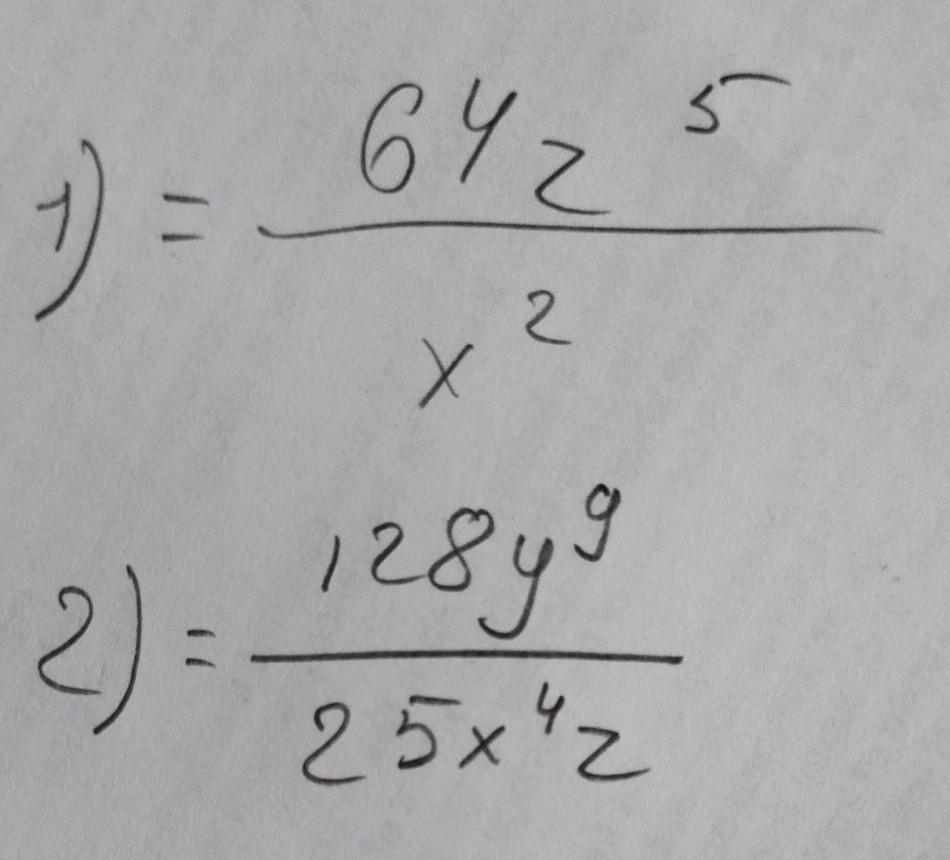 1) = 64z⁵ / x²
2) = 128y⁹ / 25x⁴z